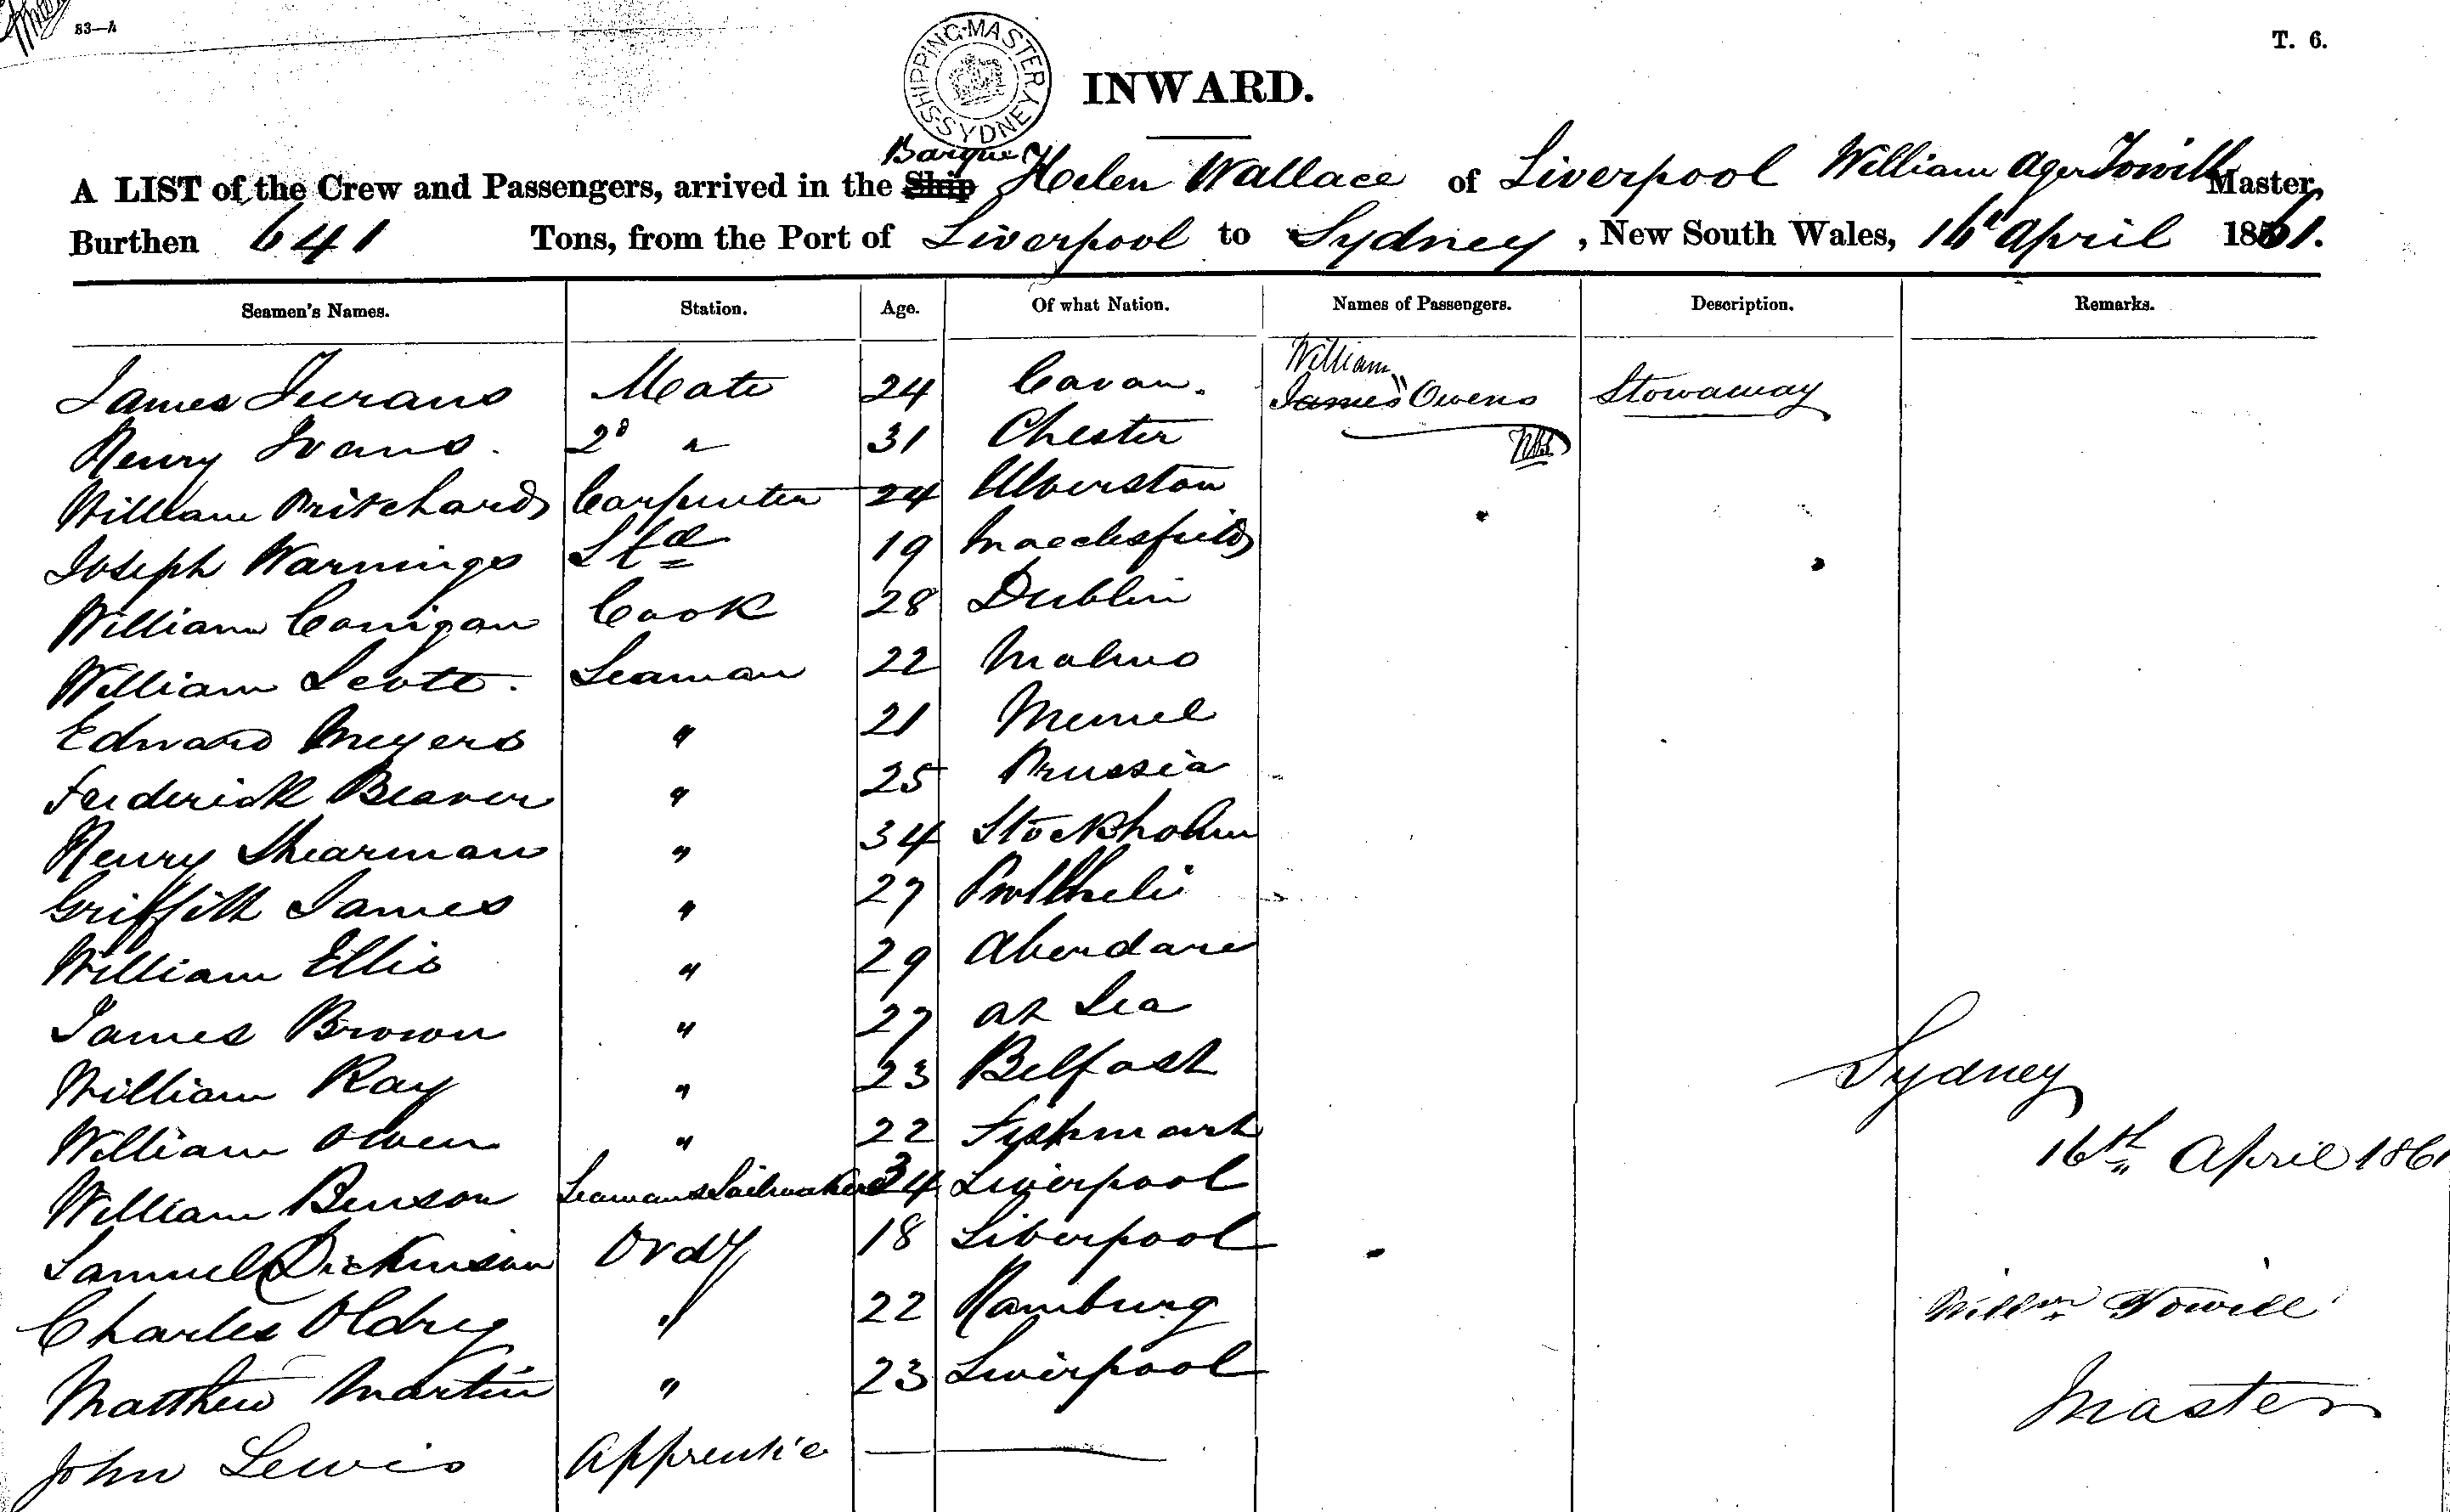 83—h
SHIPPING MASTER SYDNEY
T. 6.
INWARD.
Barque
A LIST of the Crew and Passengers, arrived in the Ship Helen Wallace of Liverpool William Ager Towill Master,
Burthen 641 Tons, from the Port of Liverpool to Sydney, New South Wales, 16th April 1861.
Seamen's Names. Station. Age. Of what Nation. Names of Passengers. Description. Remarks.
William
James Mate 24 Cavan. James Owens Stowaway
Henry Evans. 2d " 31 Chester
William Pritchard Carpenter 24 Ulverston
Joseph Warnings Std 19 Macclesfield
William Corrigan Cook 28 Dublin
William Scott. Seaman 22 Malmo
Edward Meyers " 21 Memel
Frederick Beaver " 25 Prussia
Henry Shearman " 34 Stockholm
Griffith James " 27 Pwllheli
William Ellis " 29 Aberdare
James Brown " 27 at Sea
William Ray " 23 Belfast
Sydney
William Owen " 22
16th April 1861
William Benson Seaman & Sailmaker 34 Liverpool
Samuel Dickinson Ordy 18 Liverpool
Charles Oldrey " 22 Hamburg
Willm Towill
Matthew Martin " 23 Liverpool
Master
John Lewis Apprentice